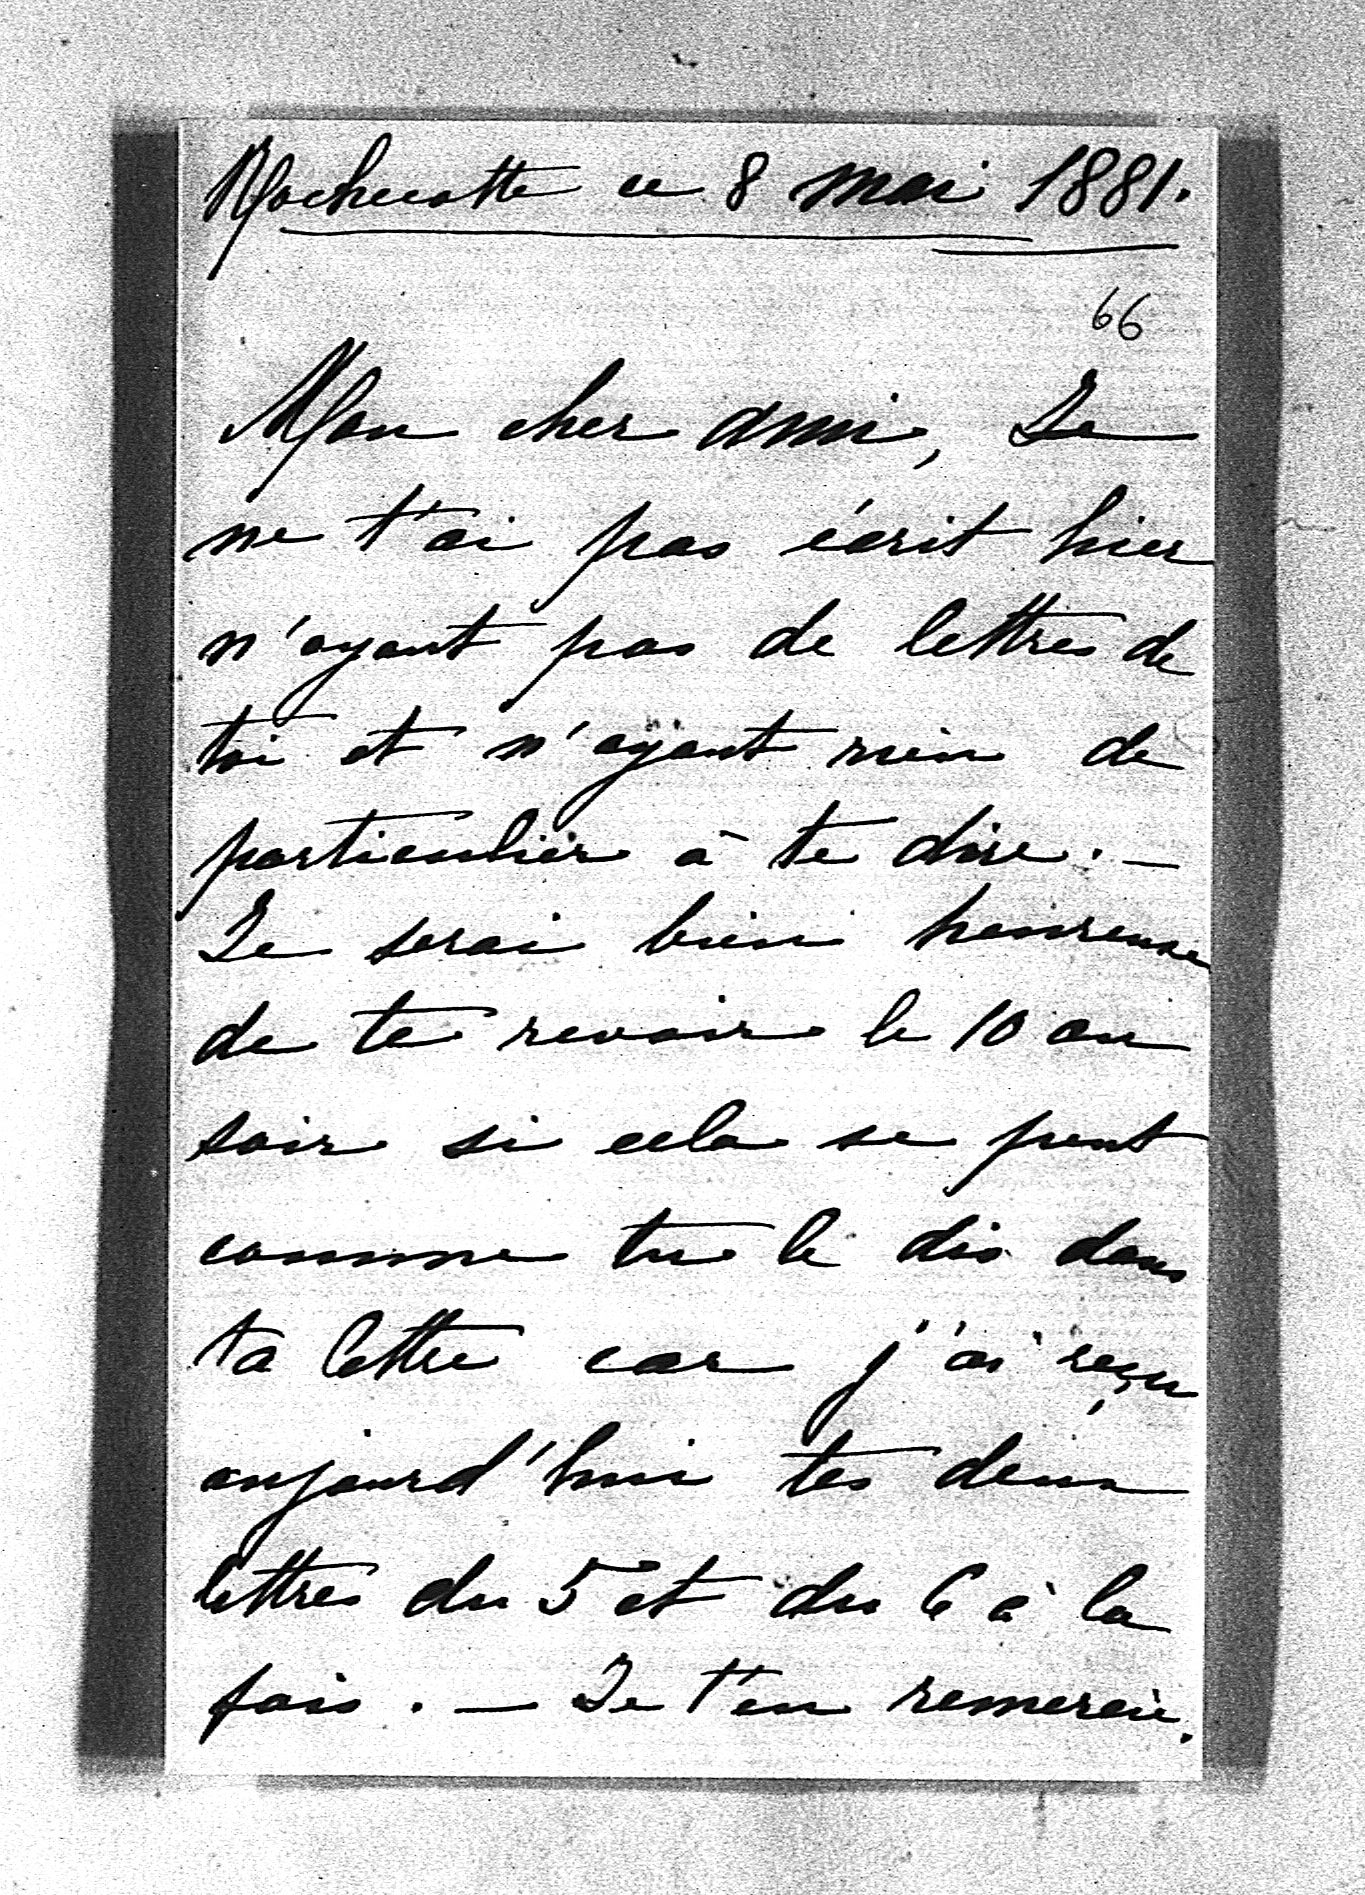 Rochecotte ce 8 mai 1881.
66
Mon cher ami, Je
ne t'ai pas écrit hier
n'ayant pas de lettres de
toi et n'ayant rien de
particulier à te dire. —
Je serai bien heureuse
de te revoir le 10 au
soir si cela se peut
comme tu le dis dans
ta lettre car j'ai reçu
aujourd'hui tes deux
lettres du 5 et du 6 à la
fois. — Je t'en remercie.